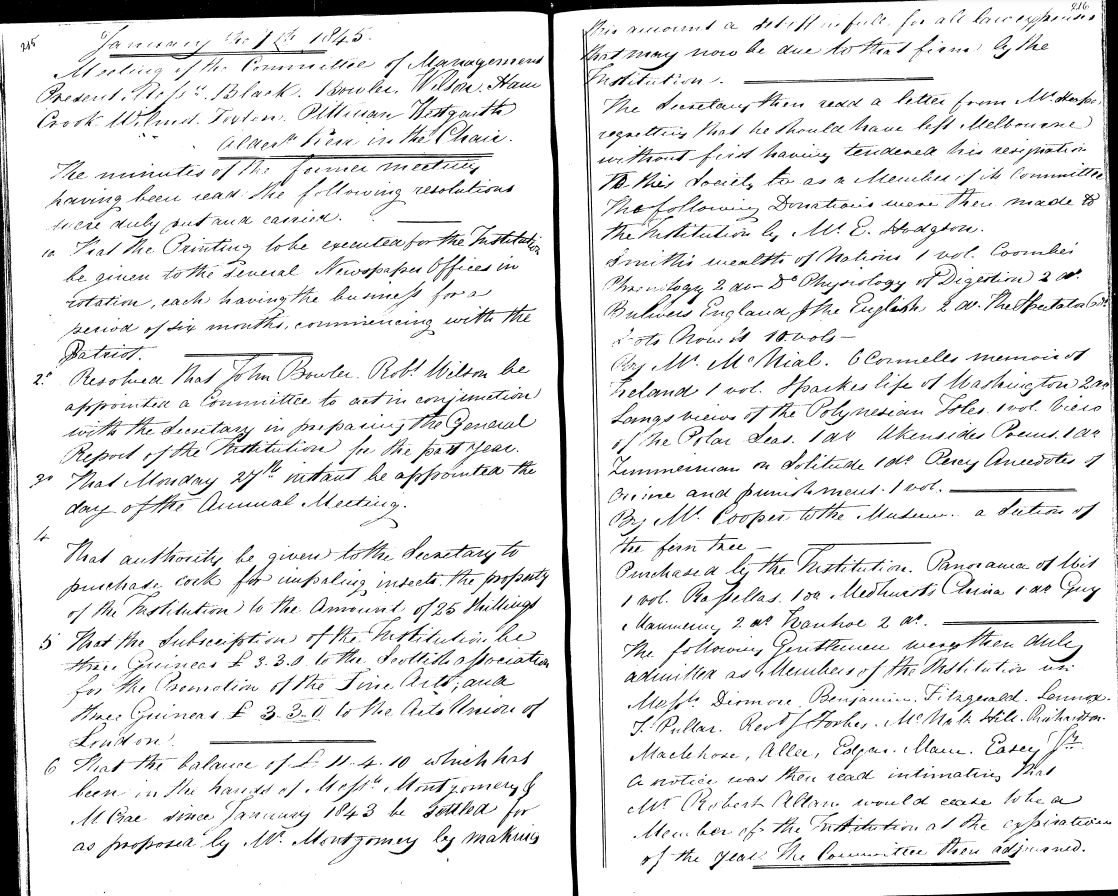 215
January the 7th 1845.
Meeting of the Committee of Management
Present, Messrs. Black. Bowler. Wilson. Ham
Crook Wilmot. Pittman
in the Chair.
The minutes of the former meeting
having been read the following resolutions
were duly put and carried.
1o That the Printing to be executed for the Institution
be given to the several Newspaper Offices in
rotation, each having the business for a
period of six months, commencing with the
Patriot.
2o Resolved that John Bowler. Robt. Wilson be
appointed a Committee to act in conjunction
with the Secretary in preparing the General
Report of the Institution for the past Year.
3o That Monday 27th instant be appointed the
day of the Annual Meeting.
4
That authority be given to the Secretary to
purchase cork for impaling insects the property
of the Institution to the Amount of 25 Shillings
5 That the Subscription of the Institution be
three Guineas £ 3.3.0 to the Scottish association
for the Promotion of the Fine Arts, and
three Guineas £ 3.3.0 to the Arts Union of
London.
6 That the balance of £ 11.4.10 which has
been in the hands of Messrs. Montgomery &
McCrae since January 1843 be Settled for
as proposed by Mr. Montgomery by making
216
this amount a set off in full for all law expenses
that may now be due to that firm by the
Institution.
The Secretary then read a letter from Mr.
regretting that he should have left Melbourne
without first having tendered his resignation
to this Society as a Member of its Committee
The following Donations were then made to
the Institution by Mr. E. Hodgson.
Smith's wealth of Nations 1 vol. Coombe's
Phrenology 2 do - Do Physiology of Digestion 2 do.
Bulwers England & the English 2 do. The Spectator
Scots Novels 10 vols -
By Mr. McNial. O Connells memoir of
Ireland 1 vol. Sparkes life of Washington 2 do
Langs views of the Polynesian Isles. 1 vol. View
of the Polar Seas. 1 do Akensides Poems. 1 do
Zimmerman on Solitude 1 do. Percy Anecdotes of
crime and punishment. 1 vol.
By Mr. Cooper to the Museum. a section of
the fern tree -
Purchased by the Institution. Panorama of Wit
1 vol. Rassellas. 1 do Medhursts China 1 do Guy
Mannering 2 do Ivanhoe 2 do.
The following Gentlemen were then duly
admitted as Members of the Institution viz
Messrs Benjamin. Fitzgerald. Lennox.
T. Pullar. Revd J Forbes. Hill. Richardson.
Maclehose, Allee, Edgar. Mam. Easey Jr.
A notice was then read intimating that
Mr Robert Allan would cease to be a
Member of the Institution at the expiration
of the year. The Committee then adjourned.